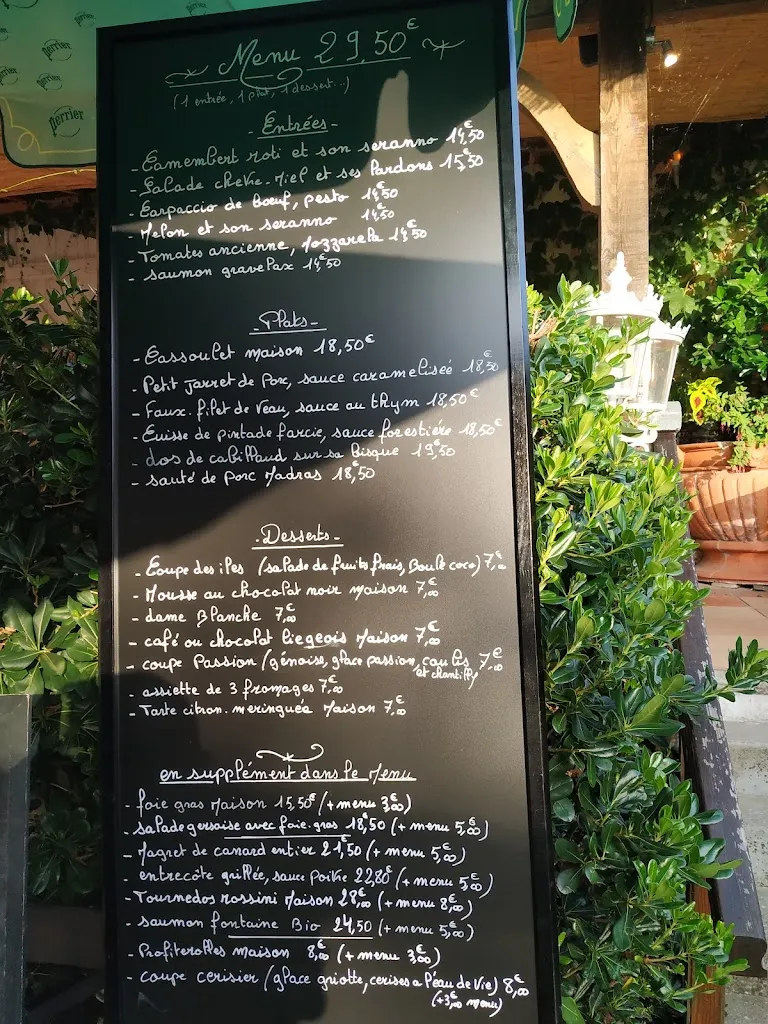 perrier
perrier
perrier
Menu 29,50€
(1 entrée, 1 plat, 1 dessert...)
- Entrées -
- Camembert roti et son seranno 14,50€
- Salade chèvre-Miel et ses Lardons 15,50€
- Carpaccio de Bœuf, pesto 14,50€
- Melon et son seranno 14,50€
- Tomates ancienne, Mozzarela 14,50€
- saumon gravelax 14,50€
- Plats -
- Cassoulet maison 18,50€
- Petit Jarret de Porc, sauce caramelisée 18,50€
- Faux. filet de Veau, sauce au thym 18,50€
- Cuisse de pintade farcie, sauce forestière 18,50€
- dos de cabillaud sur sa Bisque 19,50€
- sauté de porc Madras 18,50€
- Desserts -
- Coupe des iles (salade de fruits frais, Boule coco) 7,00€
- Mousse au chocolat noir Maison 7,00€
- dame Blanche 7,00€
- café ou chocolat liegeois Maison 7,00€
- coupe Passion (génoise, glace passion, coulis et chantilly) 7,00€
- assiette de 3 fromages 7,00€
- Tarte citron. meringuée Maison 7,00€
en supplément dans le Menu
- foie gras Maison 15,50€ (+ menu 3,00€)
- salade gersoise avec foie-gras 18,50€ (+ menu 5,00€)
- Magret de canard entier 21,50€ (+ menu 5,00€)
- entrecôte grillée, sauce Poivre 22,80€ (+ menu 5,00€)
- Tournedos rossini Maison 28,00€ (+ menu 8,00€)
- saumon fontaine Bio 24,50€ (+ menu 5,00€)
- Profiterolles maison 8,00€ (+ menu 3,00€)
- coupe cerisier (glace griotte, cerises a l'eau de Vie) 8,00€
(+3,00€ menu)